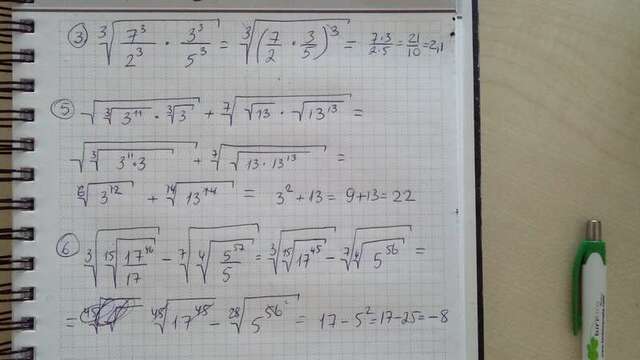 ③ ∛(7³/2³ · 3³/5³) = ∛(7/2 · 3/5)³ = 7·3/2·5 = 21/10 = 2,1
⑤ √(∛3¹¹ · ∛3) + ⁷√(√13 · √13¹³) =
= √(∛(3¹¹·3)) + ⁷√(√(13 · 13¹³)) =
⁶√3¹² + ¹⁴√13¹⁴ = 3² + 13 = 9 + 13 = 22
⑥ ∛(¹⁵√(17⁴⁶/17)) − ⁷√(⁴√(5⁵⁷/5)) = ∛(¹⁵√17⁴⁵) − ⁷√(⁴√5⁵⁶) =
= ⁴⁵√17⁴⁵ − ²⁸√5⁵⁶ = 17 − 5² = 17 − 25 = −8